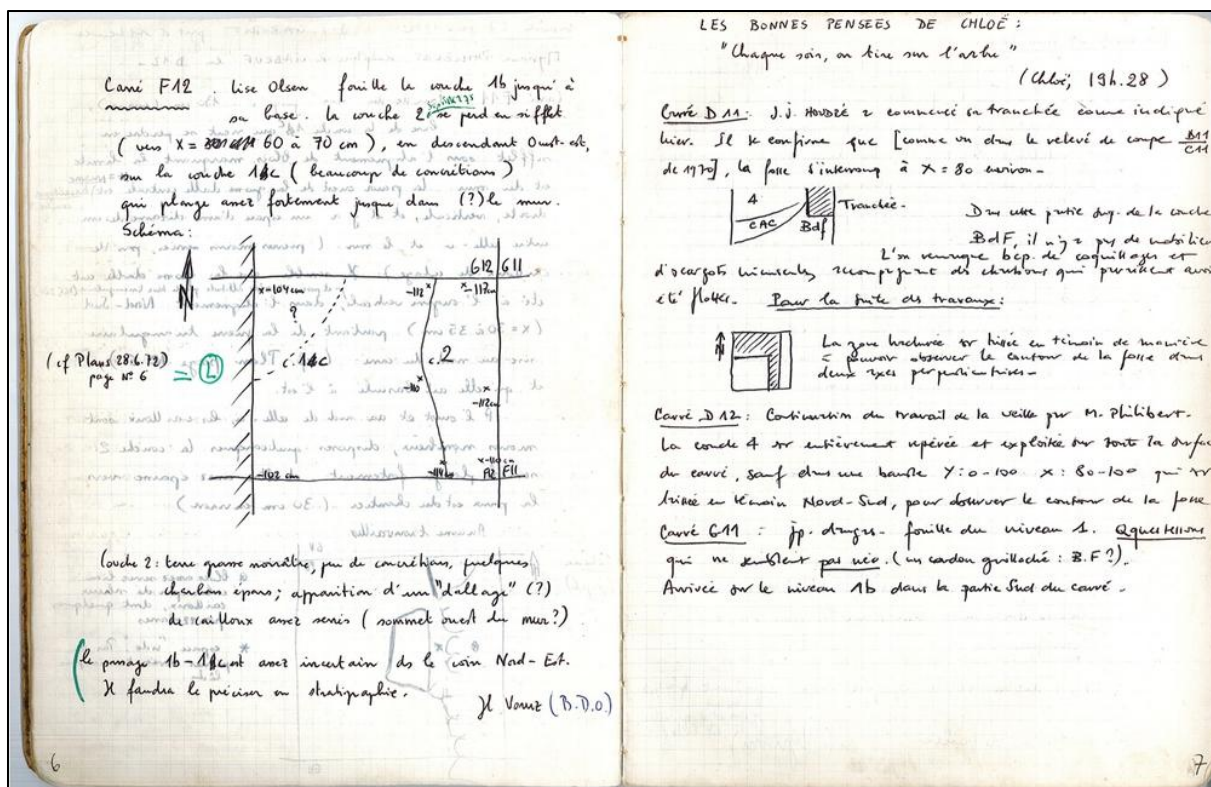 Carré F12. Lise Olsen fouille la couche 1b jusqu'à
sa base. La couche 2 se perd en sifflet
( vers X = 60 à 70 cm ), en descendant Ouest-est,
sur la couche 1c ( beaucoup de concrétions )
qui plonge assez fortement jusque dans (?) le mur.
Schéma :
G12 G11
N
x = 104 cm
-112 x
x -112cm
?
( cf Plans 28.6.72)
page N° 6
= 2
c. 1c
c. 2
-110 x
x
-112cm
-102 cm
-114
x -110 cm
F12 F11
Couche 2 : terre grasse noirâtre, peu de concrétions, quelques
charbons épars ; apparition d'un "dallage" (?)
de cailloux assez serrés ( sommet ouest du mur ?)
le passage 1b - 1c est assez incertain ds le coin Nord-Est.
Il faudra le préciser en stratigraphie.
(B.D.O.)
6
LES BONNES PENSEES DE CHLOÉ :
"Chaque soir, on tire sur l'arbre"
(Chloé, 19h.28 )
Carré D 11 : J.J. HOUDRÉ a commencé sa tranchée comme indiqué
hier. Il se confirme que [comme vu dans le relevé de coupe B11
C11
de 1970], la fosse s'interromp à X = 80 environ -
4
CAC
BdF
Tranchée -
Dans cette partie sup. de la couche
BdF, il n'y a pas de mobilier
L'on remarque bcp. de coquillages et
d'escargots minuscules accompagnant des charbons qui paraissent avoir
été flottés. Pour la suite des travaux :
N
La zone hachurée est laissée en témoin de manière
à pouvoir observer le contour de la fosse dans
deux axes perpendiculaires -
Carré D 12 : Continuation du travail de la veille par M. Philibert.
La couche 4 est entièrement repérée et exploitée sur toute la surface
du carré, sauf dans une bande Y : 0-100 X : 80-100 qui est
laissée en témoin Nord-Sud, pour observer le contour de la fosse
Carré G11 : jp. - fouille du niveau 1. Qques tessons
qui ne semblent pas néo. ( un cordon guilloché : B.F ?).
Arrivée sur le niveau 1b dans la partie Sud du carré -
7